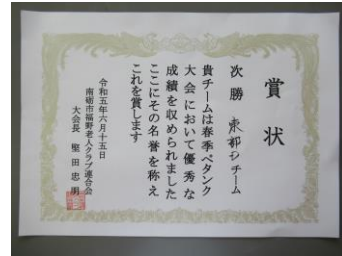 賞状
次勝 東部Dチーム
貴チームは春季ペタンク
大会において優秀な
成績を収められました
ここにその名誉を称え
これを賞します
令和五年六月十五日
南砺市福野老人クラブ連合会
大会長 堅田忠明